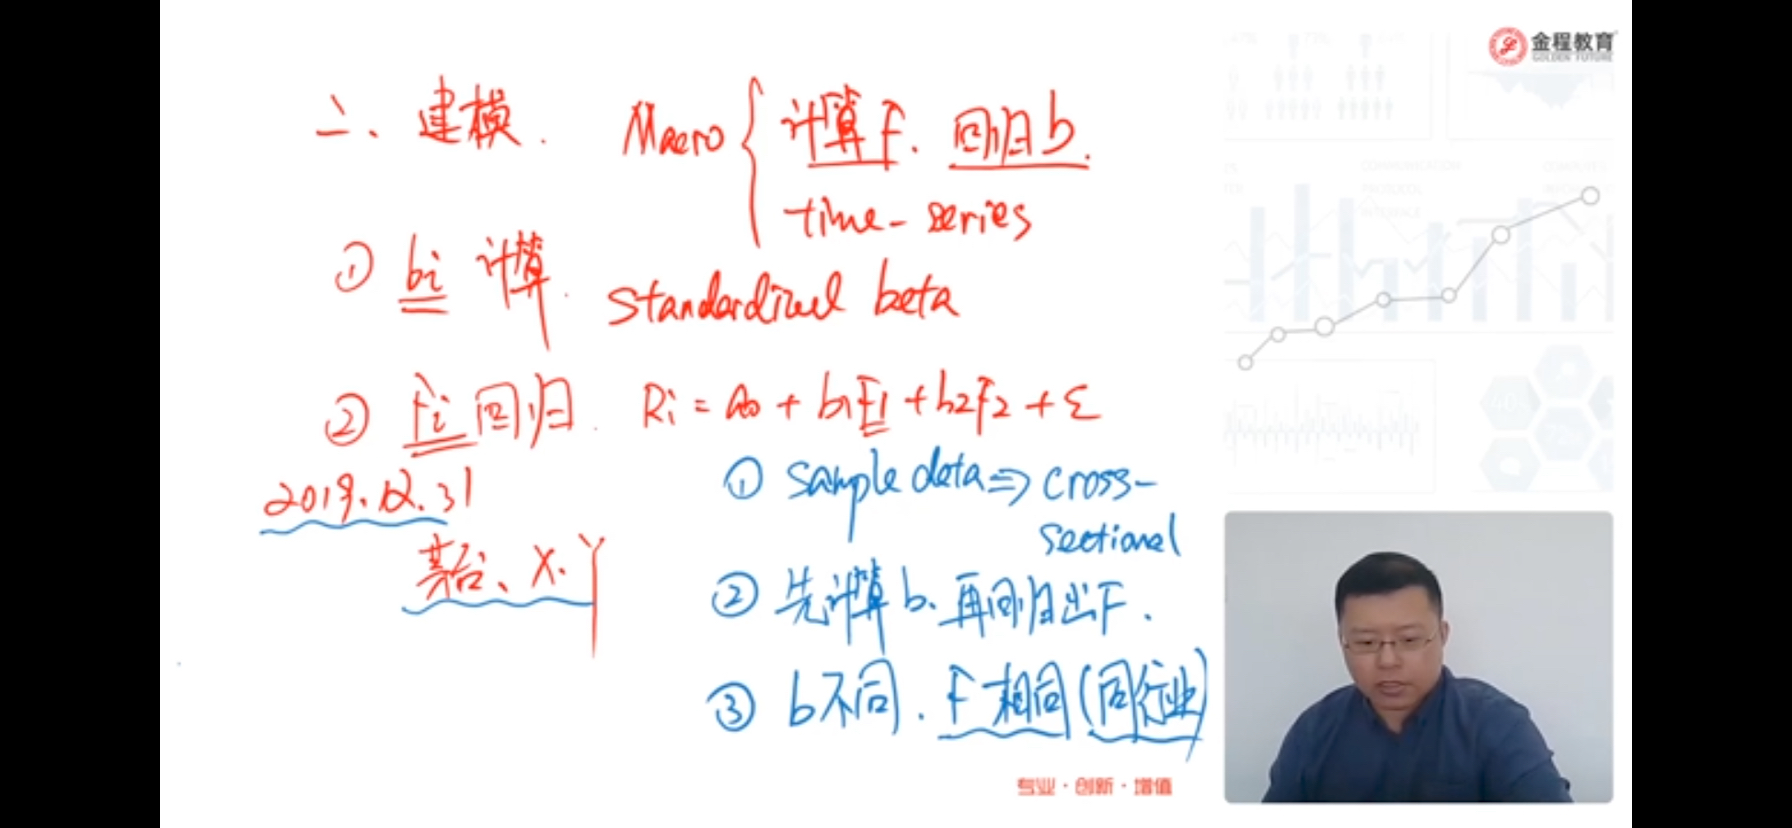 金程教育
GOLDEN FUTURE
二、建模. Macro { 计算F. 回归b.
time-series
① bi 计算. Standardized beta
② Fi 回归. Ri = a0 + b1F1 + b2F2 + ε
2019.12.31
茅台、X.丫
① sample data ⇒ cross-
sectional
② 先计算b. 再回归出F.
③ b不同. F相同(同行业)
专业·创新·增值